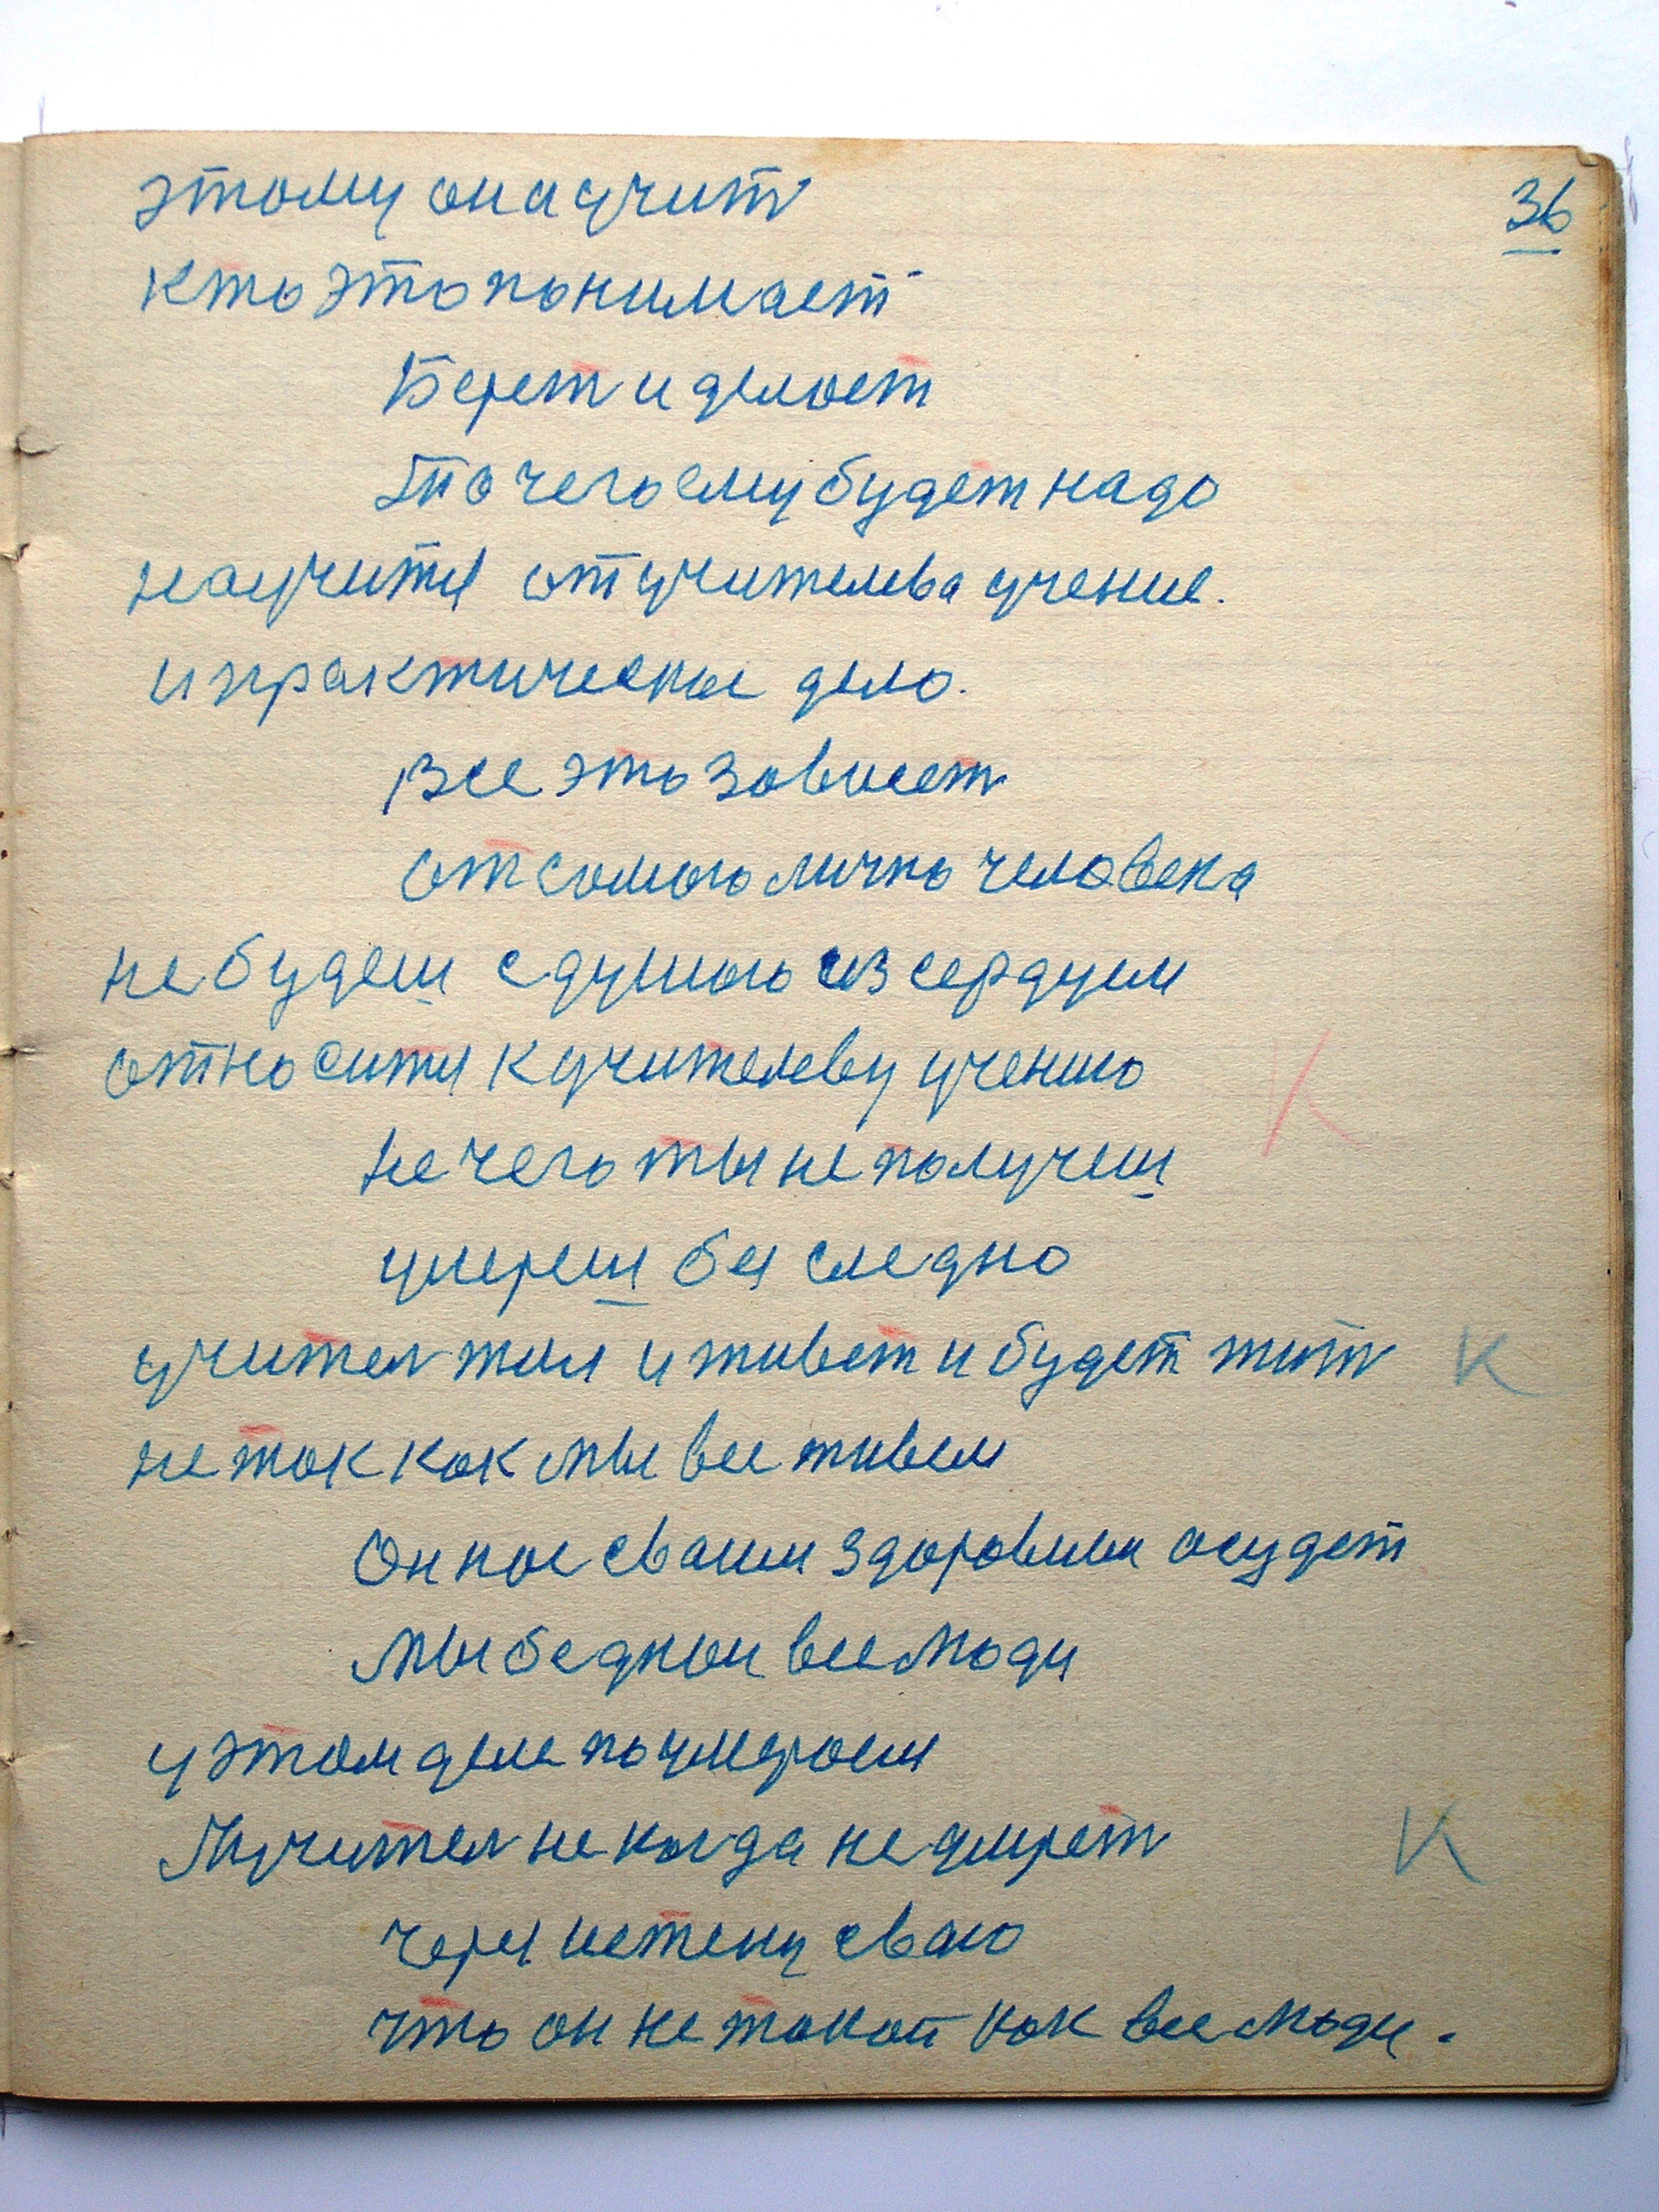 36
этому она учит
кто это понимает
Берет и делает
То чего ему будет надо
научитя от учителева учение.
и практическое дело.
все это зависет
от самого лично человека
не будеш с душою из сердцем
относитя к учителеву учению
не чего ты не получеш
умереш без следно
учител жил и живет и будет жит
не так как мы все живем
Он нас сваим здоровием осудет
мы бедныи все люди
у этом деле поумераем
Учител не когда не умрет
через истену сваю
что он не такой как все люди.
К
К
К